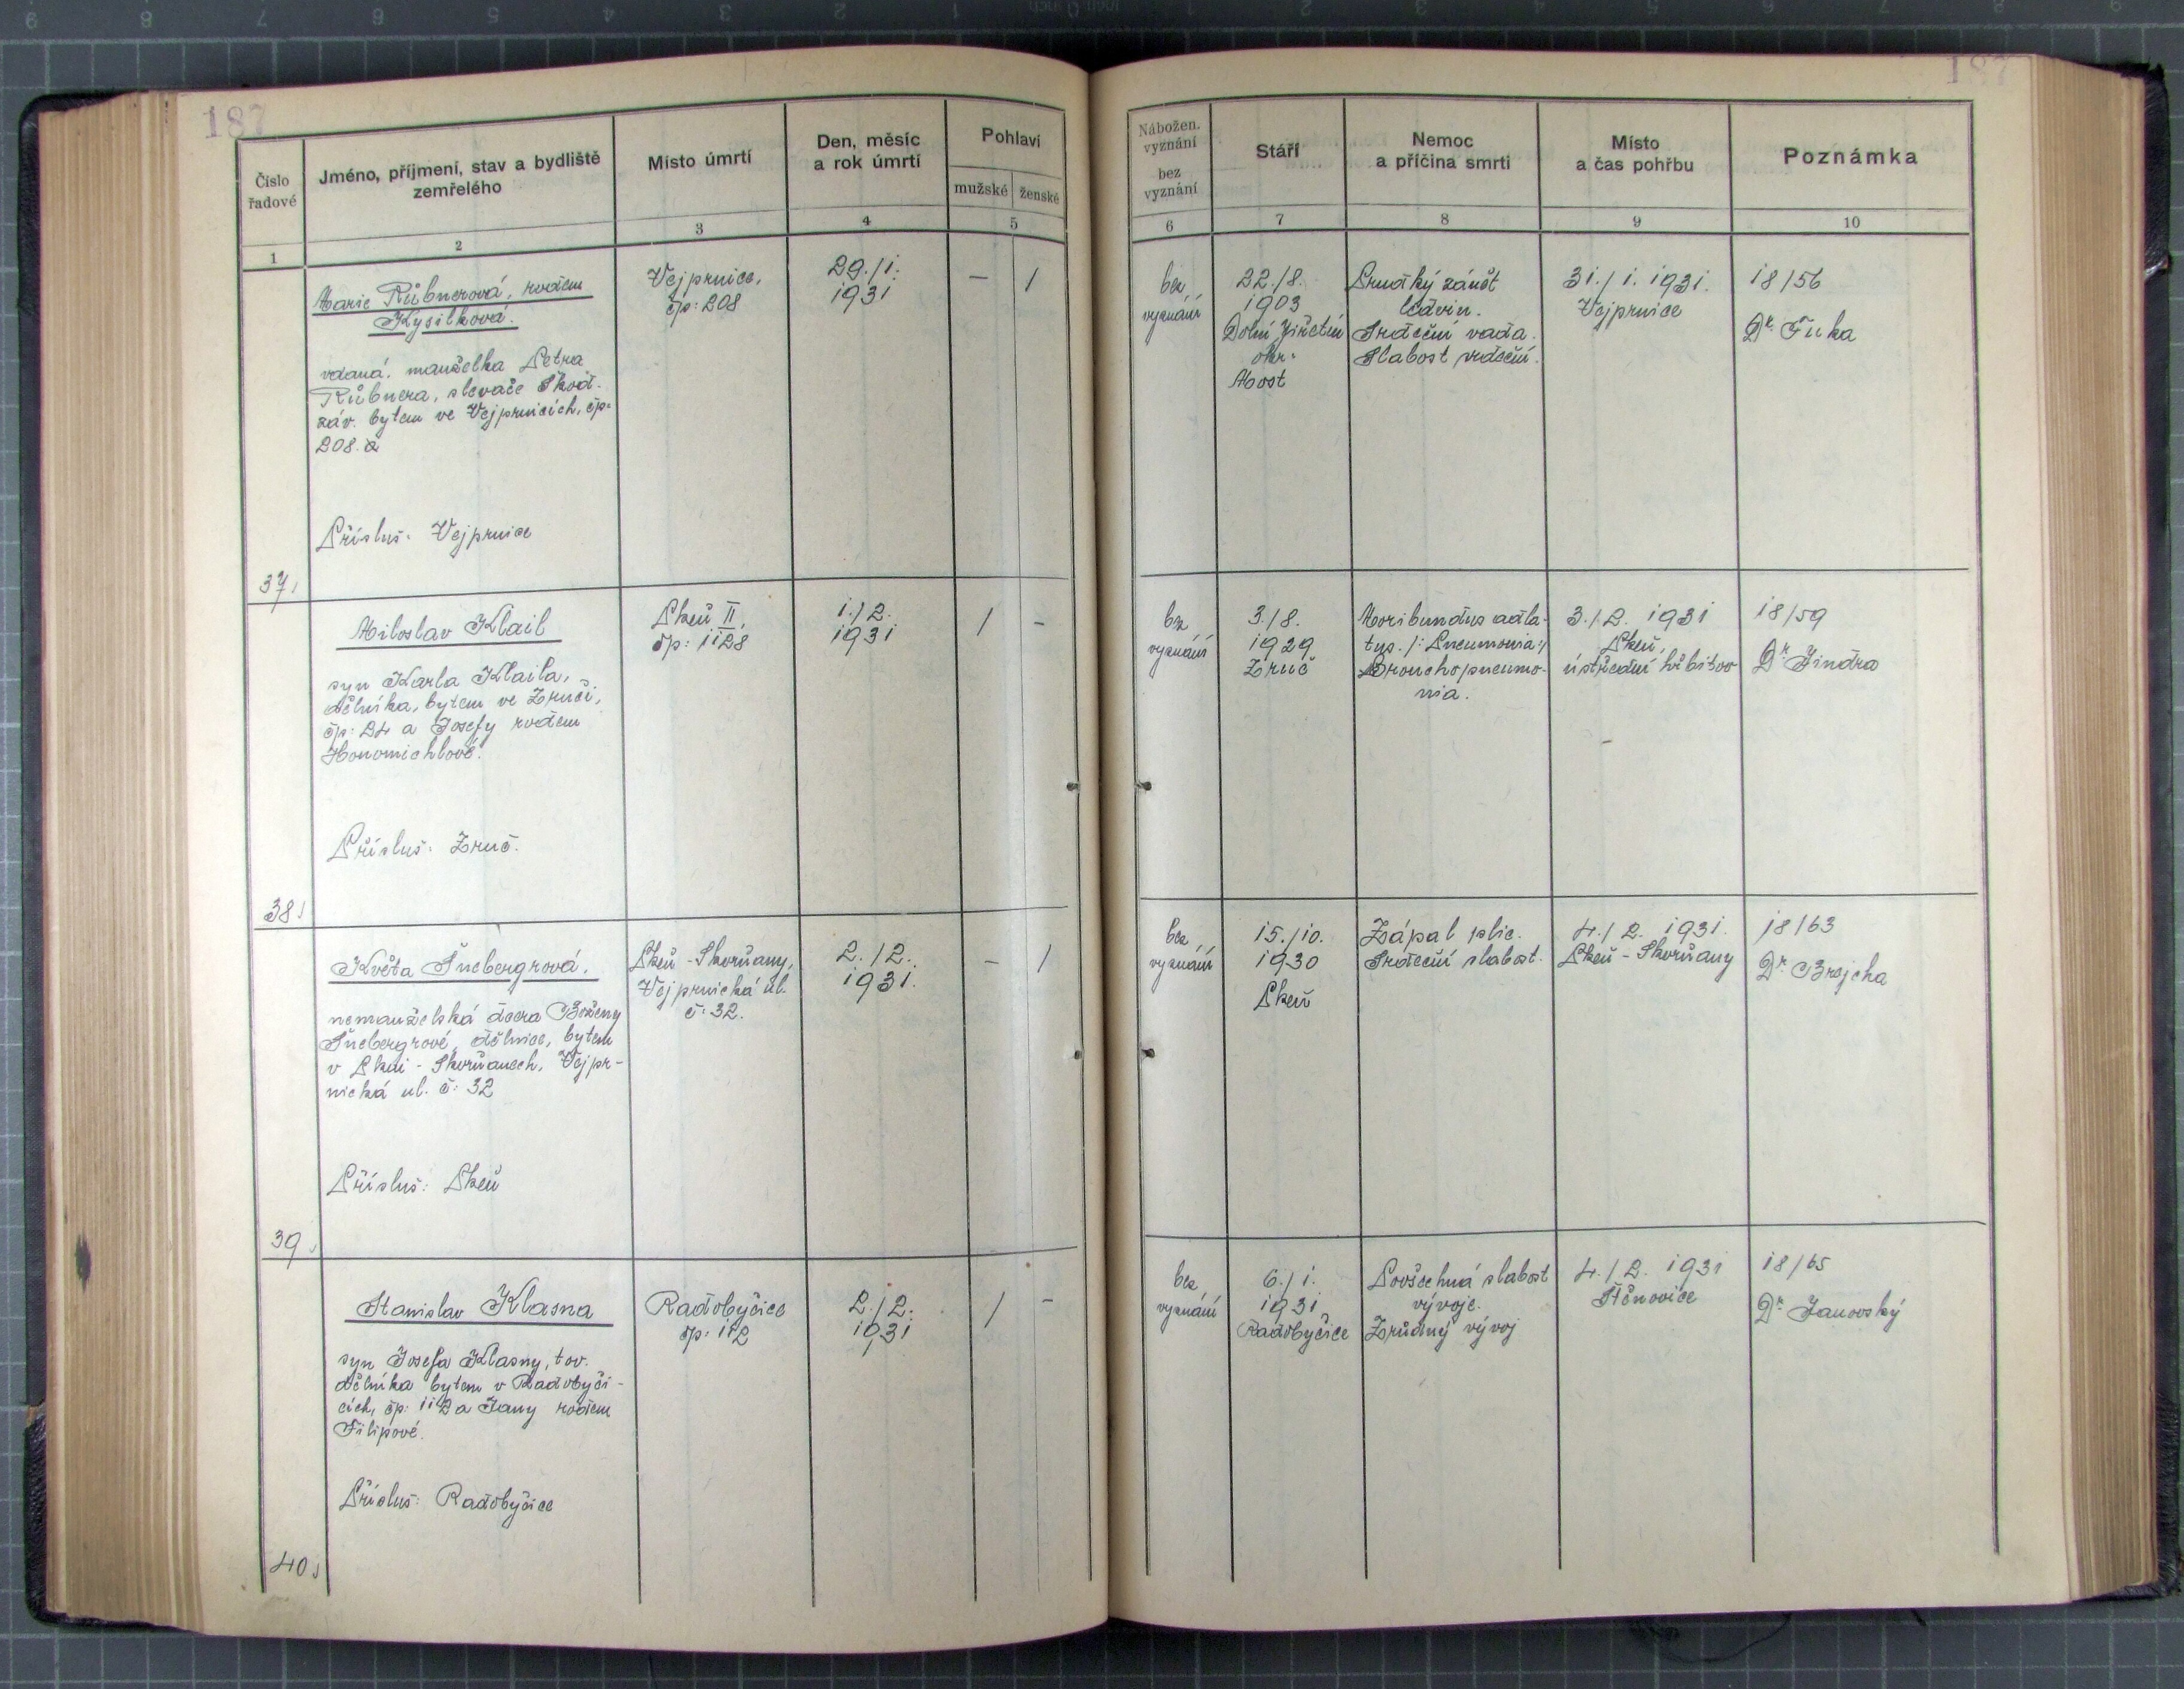 187
187
Číslo
řadové
Jméno, příjmení, stav a bydliště
zemřelého
Místo úmrtí
Den, měsíc
a rok úmrtí
Pohlaví
mužské
ženské
Nábožen.
vyznání
bez
vyznání
Stáří
Nemoc
a příčina smrti
Místo
a čas pohřbu
Poznámka
1
2
3
4
5
6
7
8
9
10
37
Marie Růbnerová, rodem
Kysilková.
vdaná. manželka Petra
Růbnera, slevače Škod.
záv. bytem ve Vejprnicích, čp:
208.
Přísluš: Vejprnice
Vejprnice,
čp: 208
29./1.
1931
— /
bez
vyznání
22./8.
1903
Dolní Jiřetín
okr:
Most
Prudký zánět
ledvin.
Srdeční vada.
Slabost srdeční.
31./1. 1931.
Vejprnice
18/56
Dr. Fuka
38
Miloslav Klail
syn Karla Klaila,
dělníka, bytem ve Zruči,
čp: 24 a Josefy rodem
Honomichlové.
Přísluš: Zruč.
Plzeň II,
čp: 1128
1./2.
1931
/ -
bez
vyznání
3./8.
1929
Zruč
Moribundus adla-
tus. /: Pneumonia:/
Bronchopneumo-
nia.
3./2. 1931
Plzeň,
ústřední hřbitov
18/59
Dr. Jindra
39
Květa Šnebergrová.
nemanželská dcera Boženy
Šnebergrové, dělnice, bytem
v Plzni - Skvrňanech, Vejpr-
nická ul. č: 32
Přísluš: Plzeň
Plzeň - Skvrňany,
Vejprnická ul.
č: 32.
2./2.
1931.
- /
bez
vyznání
15./10.
1930
Plzeň
Zápal plic.
Srdeční slabost.
4./2. 1931.
Plzeň - Skvrňany
18/63
Dr. Brejcha
40
Stanislav Klasna
syn Josefa Klasny, tov.
dělníka bytem v Radobyči-
cích, čp: 112 a Jany rodem
Filipové.
Přísluš: Radobyčice
Radobyčice
čp: 112
2./2.
1931
/ -
bez
vyznání
6./1.
1931
Radobyčice
Povšechná slabost
vývoje.
Zrůdný vývoj
4./2. 1931
Štěnovice
18/65
Dr. Janovský